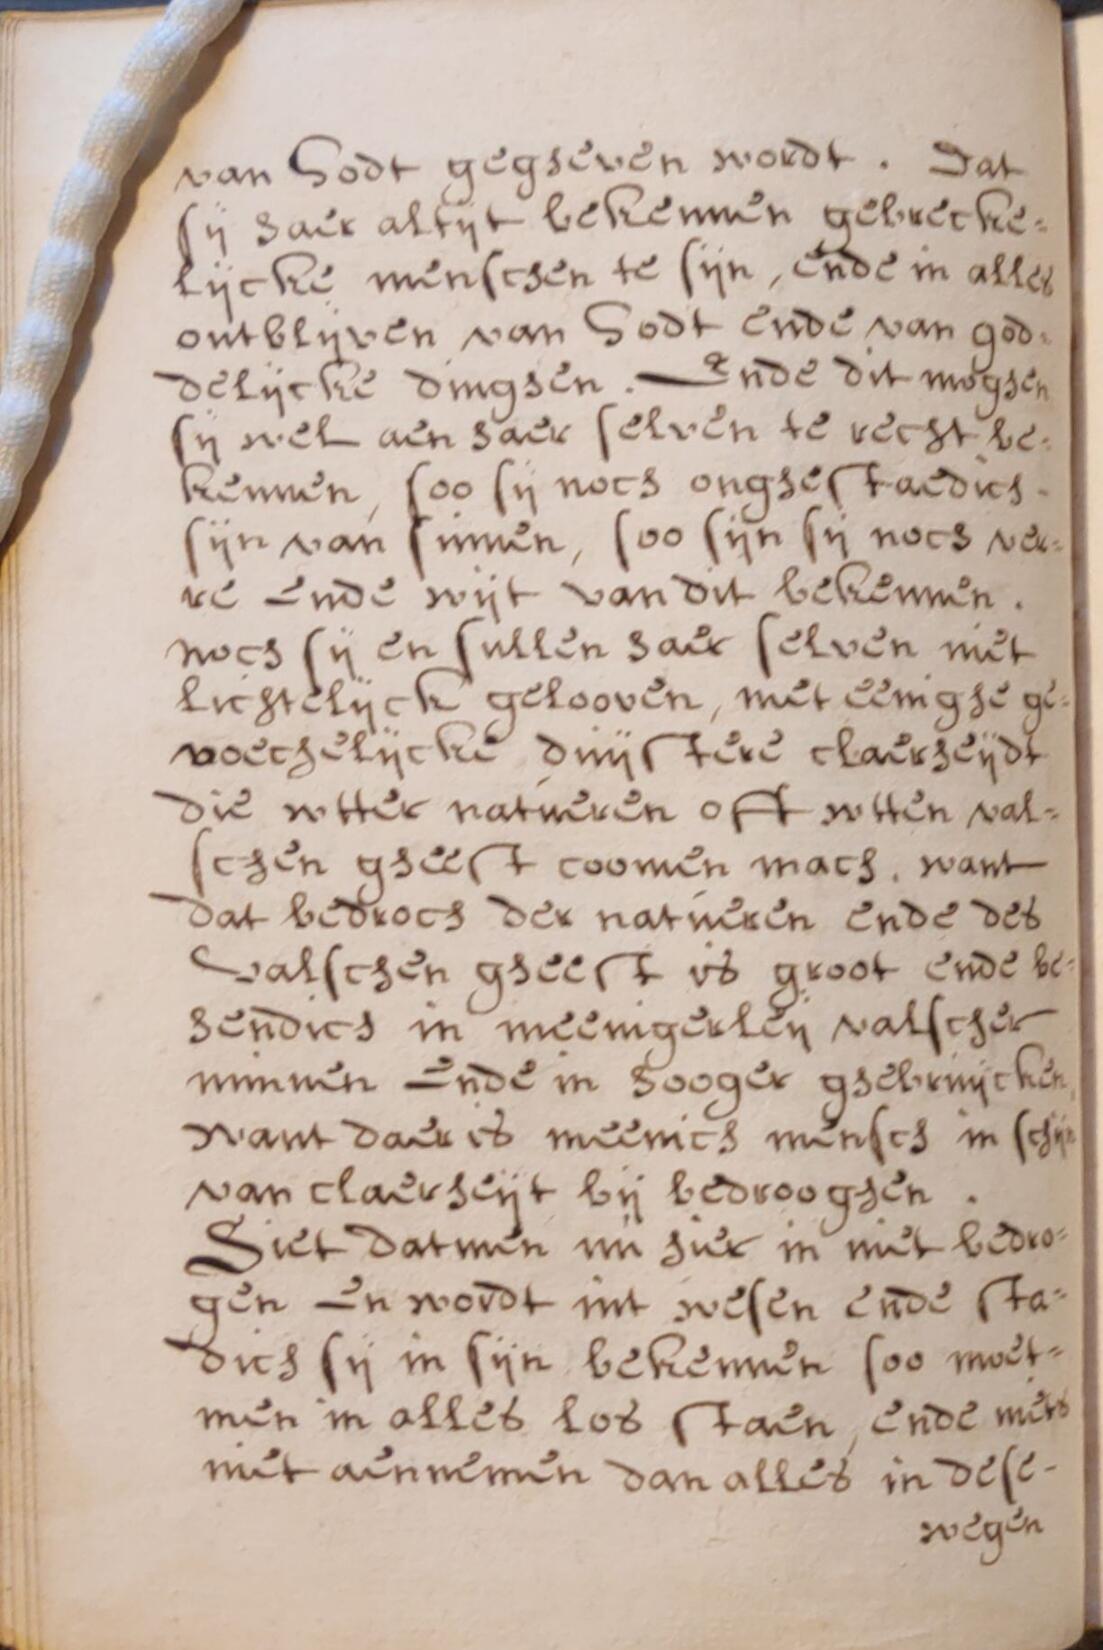 van Godt gegheven wordt. Dat
sij haer altijt bekennen gebrecke=
lijcke menschen te sijn, ende in alles
ontblijven van Godt ende van god=
delijcke dinghen. Ende dit moghen
sij wel aen haer selven te recht be=
kennen, soo sij noch onghestaedich
sijn van sinnen, soo sijn sij noch ver=
re ende wijt van dit bekennen.
noch sij en sullen haer selven niet
lichtelijck gelooven, met eenighe ge=
voechelijcke duijstere claerheijdt
die wtter natueren oft wtten val=
schen gheest coomen mach. want
dat bedroch der natueren ende des
valschen gheest is groot ende be=
hendich in meenigerleij valscher
minnen ende in hooger ghebruijcken,
want daer is meenich mensch in schijn
van claerheijt bij bedrooghen.
Siet datmen nu hier in niet bedro=
gen en wordt int wesen ende sta=
dich sij in sijn bekennen soo moet=
men in alles los staen, ende niets
niet aennemen dan alles in dese-
wegen